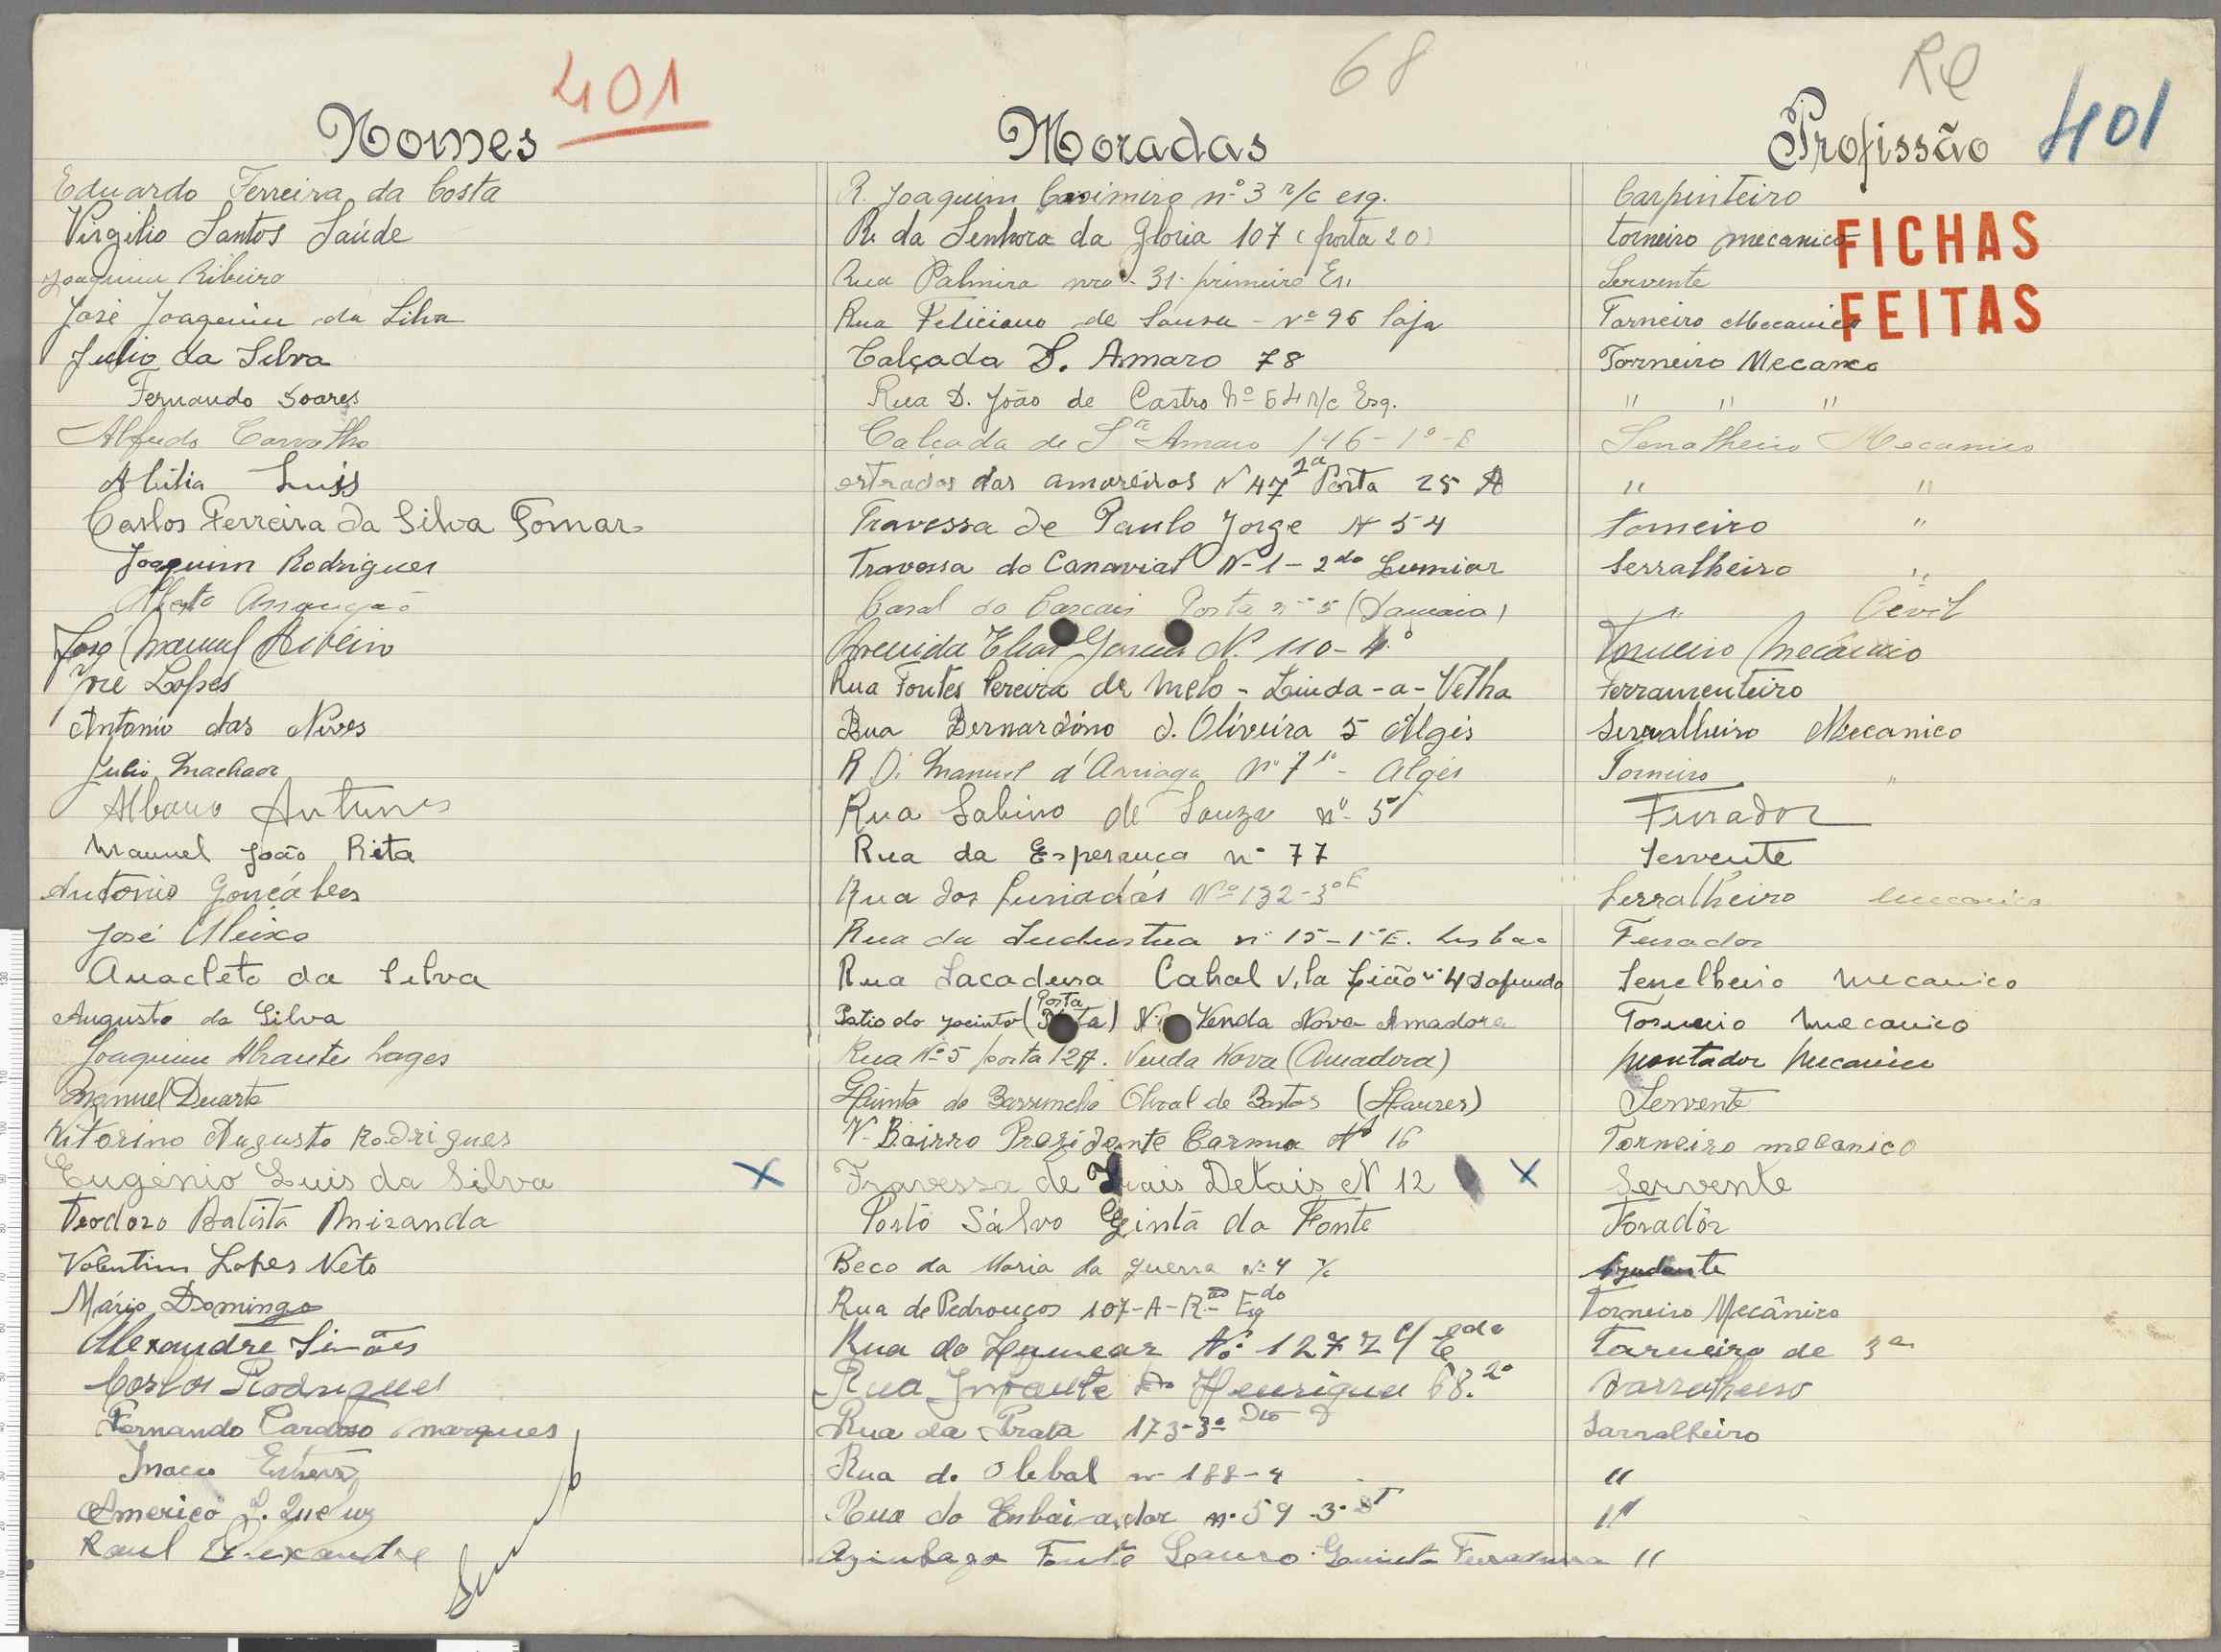 401
68
RQ
Nomes Moradas Profissão 401
Eduardo Ferreira da Costa R. Joaquim Casimiro nº 3 r/c esq. Carpinteiro
Virgilio Santos Saúde R. da Senhora da Gloria 107 (porta 20) torneiro mecanico
FICHAS
Joaquim Ribeiro Rua Palmira nro 31 primeiro Es. Servente
José Joaquim da Silva Rua Feliciano de Sousa - nº 96 loja Torneiro Mecanico
FEITAS
Julio da Silva Calçada S. Amaro 78 Torneiro Mecanico
Fernando Soares Rua D. João de Castro Nº 64 r/c Esq. " " "
Alfredo Carvalho Calçada de Stº Amaro 146-1º-E Serralheiro Mecanico
Abilia Luis estradas das amoreiras N 47 2ª Porta 25 A " "
Carlos Ferreira da Silva Tomar Travessa de Paulo Jorge N 54 torneiro "
Joaquim Rodrigues Travessa do Canavial N-1-2do Lumiar Serralheiro "
Alberto Casal do Cascais Porta nº 5 (Damaia) " Civil
José Manuel Ribeiro Avenida Elias Garcia Nº 110-4º Torneiro Mecânico
José Lopes Rua Fontes Pereira de Melo - Linda-a-Velha Ferramenteiro
Antonio das Neves Rua Bernardino d. Oliveira 5 Algés Serralheiro Mecanico
Julio Machado R D. Manuel d'Arriaga Nº 7 1º - Algés Torneiro "
Albano Antunes Rua Sabino de Souza nº 51 Furador
Manuel João Rita Rua da Esperança nº 77 Servente
Antonio Gonçálves Rua dos Lusiadas Nº 132-3º E Serralheiro mecanico
José Aleixo Rua da Industria nº 15-1º E. Lisboa Furador
Anacleto da Silva Rua Sacadura Cabral Vila Lião nº 4 Dafundo Serralheiro mecanico
Augusto da Silva Patio do Jacinto (Porta) Nº Venda Nova Amadora Torneiro mecanico
Joaquim Abrante Lages Rua Nº 5 porta 12A. Venda Nova (Amadora) Montador Mecanico
Manuel Duarte Quinta do Barruncho Olival de Bastos (Loures) Servente
Vitorino Augusto Rodrigues N. Bairro Prezidente Carmona Nº 16 Torneiro mecanico
Eugénio Luis da Silva X Travessa de Detais N 12 X Servente
Teodoro Batista Miranda Porto Sálvo Ginta da Fonte Foradôr
Valentim Lopes Neto Beco da Maria da Guerra Nº 4 r/c Ajudante
Mário Domingo Rua de Pedrouços 107-A-R. Esqdo Torneiro Mecânico
Alexandre Simões Rua do Lumear Nº 127 Torneiro de 3ª
Carlos Rodrigues Rua Infante D. Henrique 68. 2º Sarralheiro
Fernando Cardoso Marques Rua da Prata 173-3º Dto Sarralheiro
Rua do Olival nº 188-4 "
Americo L. Queluz Rua do Enbaixador nº 59 -3º "
Raul Alexandre Azinhaga Fonte Louro Quinta Ferradura "